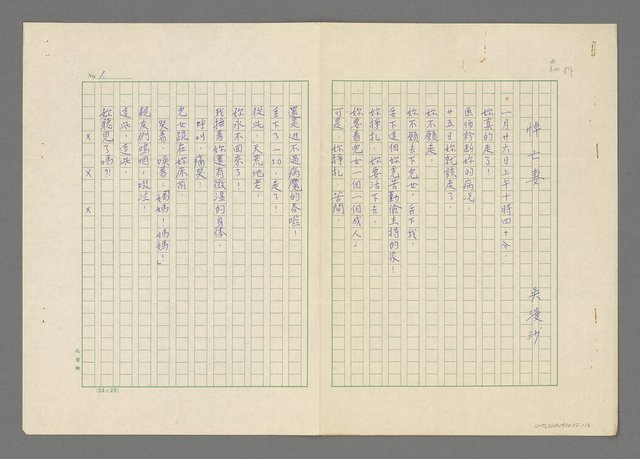 悼亡妻
吳漫沙
一月廿六日上午十時四十分，
妳真的走了！
医師診断妳的病況，
廿五日妳就該走了，
妳不願走
妳不願丟下兒女，丟下我，
丟下這個妳克苦勤儉主持的家！
妳掙扎，妳要活下去，
妳要看兒女一個一個成人；
可是，妳掙扎，苦鬪，
還是逃不過病魔的吞噬！
丟下了一切，走了！
從此，天荒地老，
妳永不回來了！
我撫着妳還有微溫的身体，
呼叫，痛哭！
兒女跪在妳床前，
哭着，喚着：「媽媽！媽媽！」
親友們嗚咽，啜泣，
這些，這些，
妳聽見了嗎？！
x x x
No. 1
(24×25)